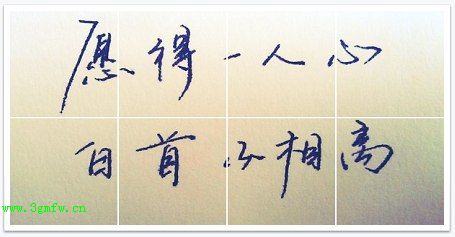 愿得一人心
白首不相离
www.3gmfw.cn